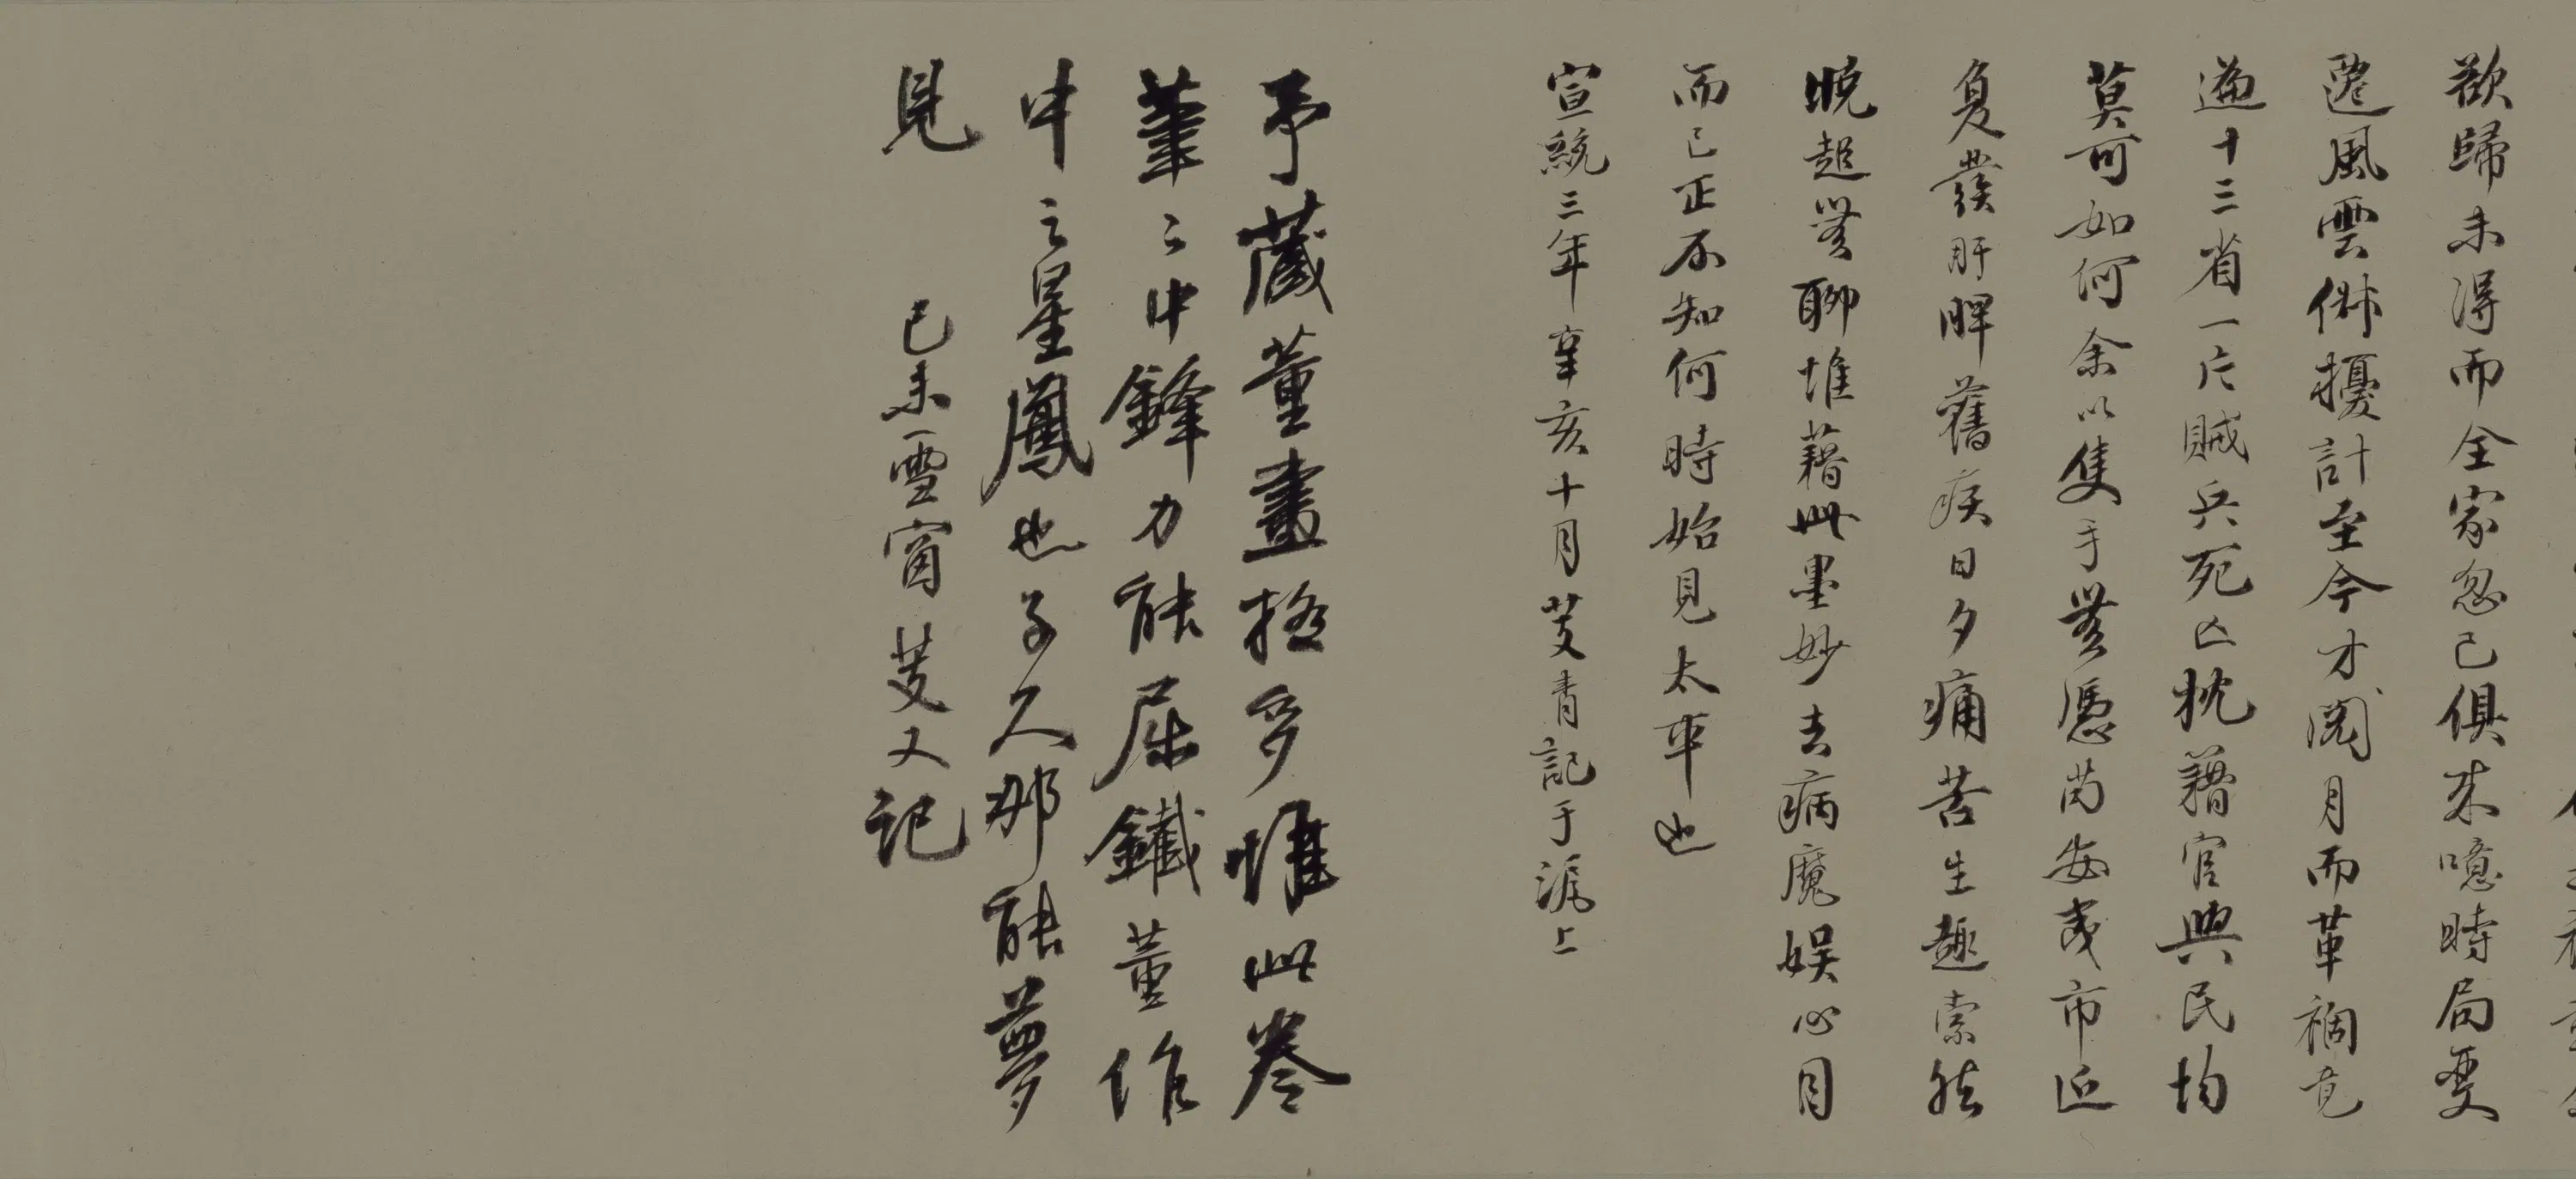 欲歸未得而全家忽已俱來噫時局更
遷風雲俶擾計至今才閱月而革禍竟
遍十三省一片賊兵死亡枕藉官與民均
莫可如何余以隻手無憑苟安夷市近
復發肝脾舊疾日夕痛苦生趣索然
晚起無聊惟藉此墨妙去病魔娛心目
而已正不知何時始見太平也
宣統三年辛亥十月芰青記于滬上
予藏董畫極多惟此卷
筆〻中鋒力能屈鐵董作
中之星鳳也子久那能夢
見
己未雪窗芰又記